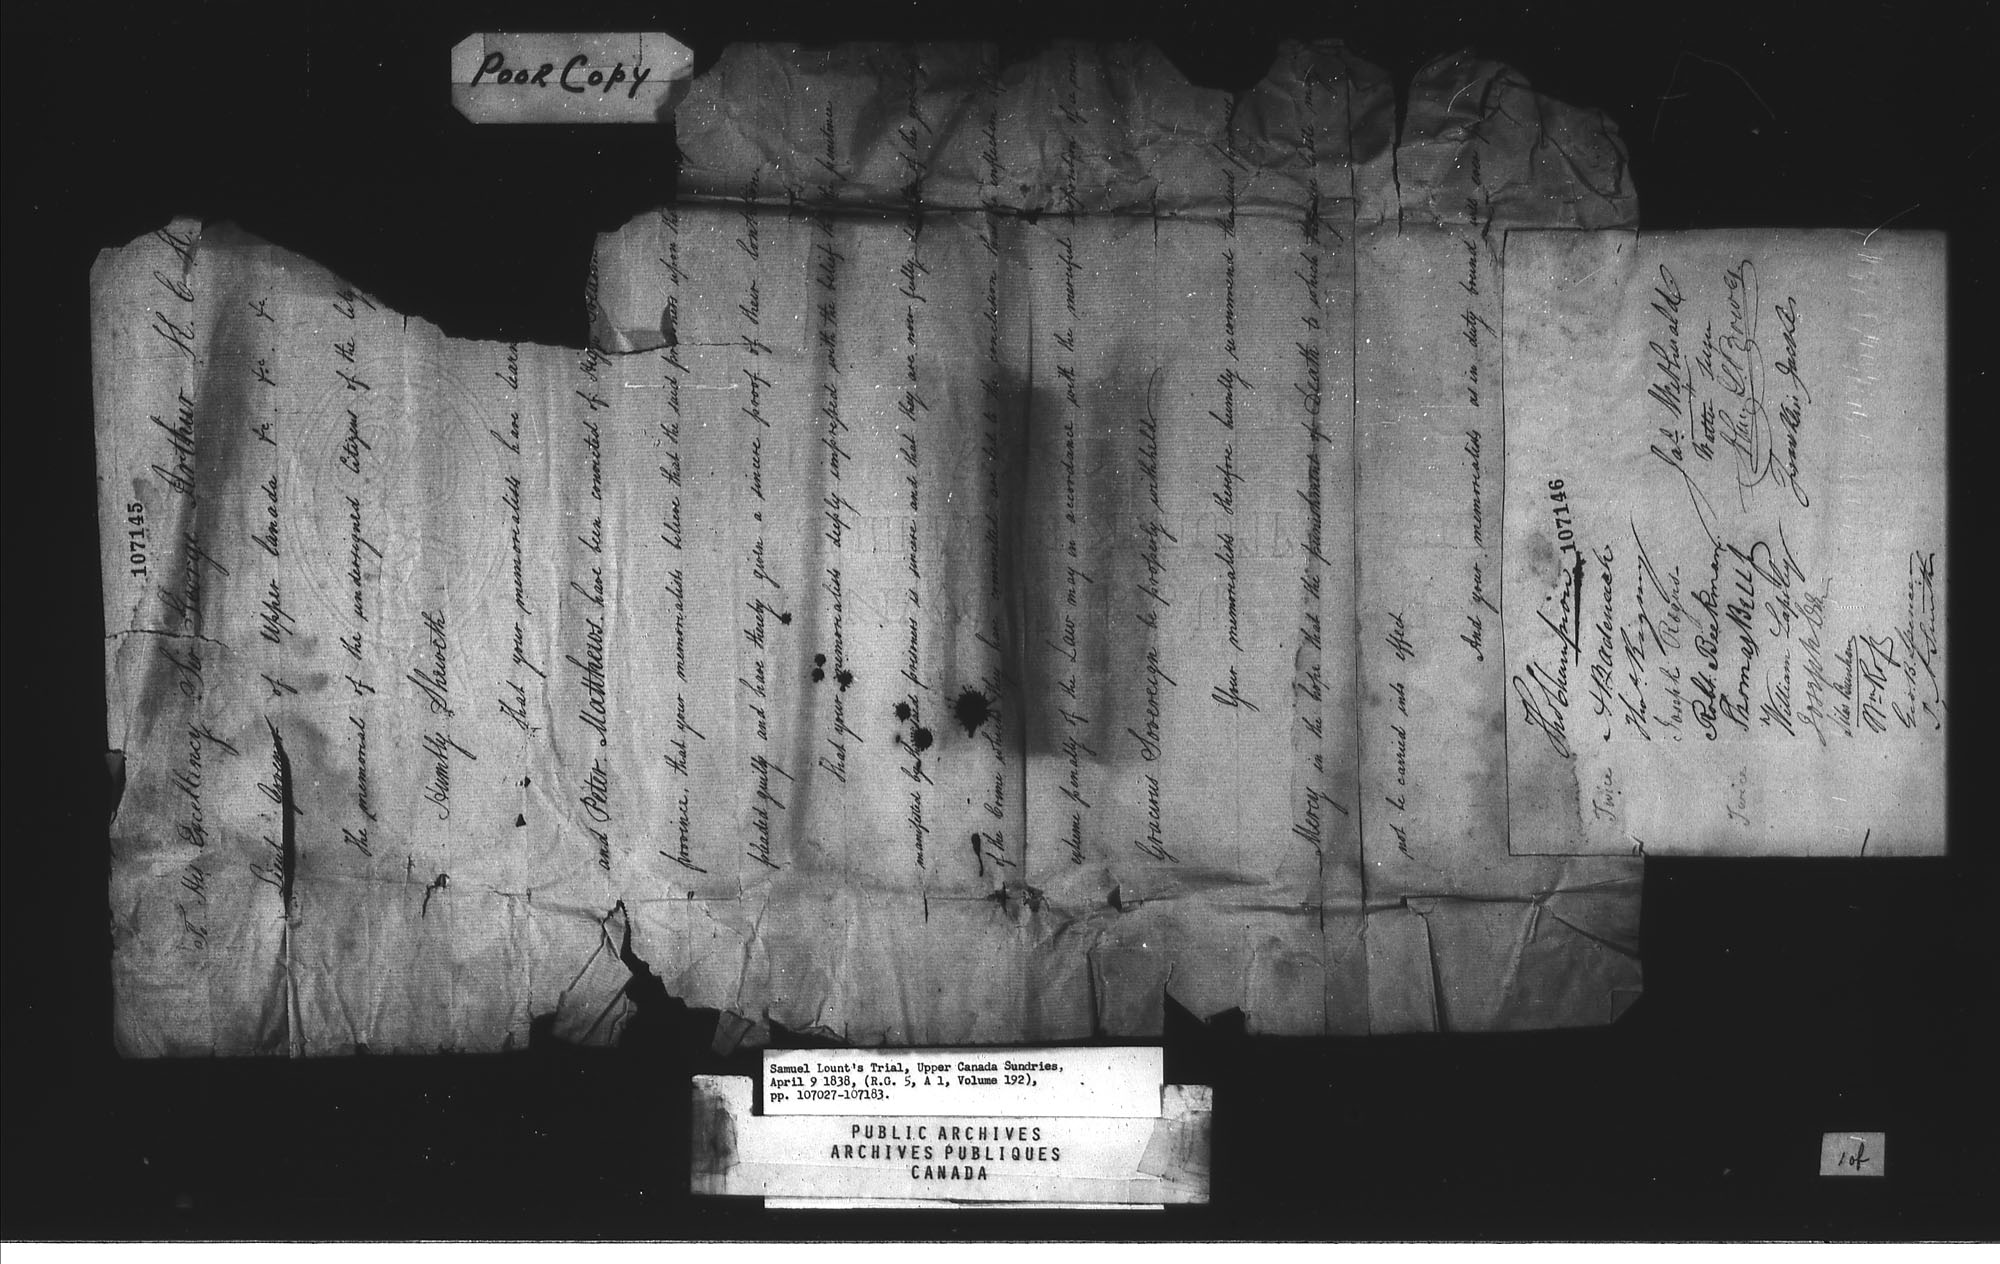 POOR COPY
107145
To His Excellency Sir George Arthur K. C. H.
Lieut Governor of Upper Canada &c &c. &c. &c.
The memorial of the undersigned Citizens of the
Humbly Sheweth
That your memorialists have learn
and Peter Matthews have been convicted of High Treason
province, that your memorialists believe that the said prisoners upon the
pleaded guilty and have thereby given a sincere proof of their
That your memorialists deeply impressed with the belief that the penitence
manifested by the said prisoners is sincere and that they are now fully of the
of the Crime which they have committed are led to the conclusion that
extreme penalty of the Law may in accordance with the merciful of a
Gracious Sovereign be properly withheld
Your memorialists therefore humbly recommend the said prisoners
Mercy in the hope that the punishment of Death to which
not be carried into effect
And your memorialists as in duty bound will ever
107146
Thos Thompson
Twice A Badenach
Thos Bigny
Joseph Rogers
Robt. Beekman
Twice Thomas BELL
William Lapsley
Joseph
Wm Ross
Geo. B. Spencer
J. Smith
Jas. McDonald
Walter
Franklin Jackes
Samuel Lount's Trial, Upper Canada Sundries,
April 9 1838, (R.G. 5, A 1, Volume 192),
pp. 107027-107183.
PUBLIC ARCHIVES
ARCHIVES PUBLIQUES
CANADA
1 of